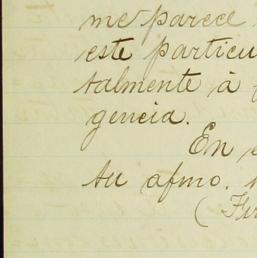 me parece
este particu
talmente á
gencia.
En
su afmo.
(Fir